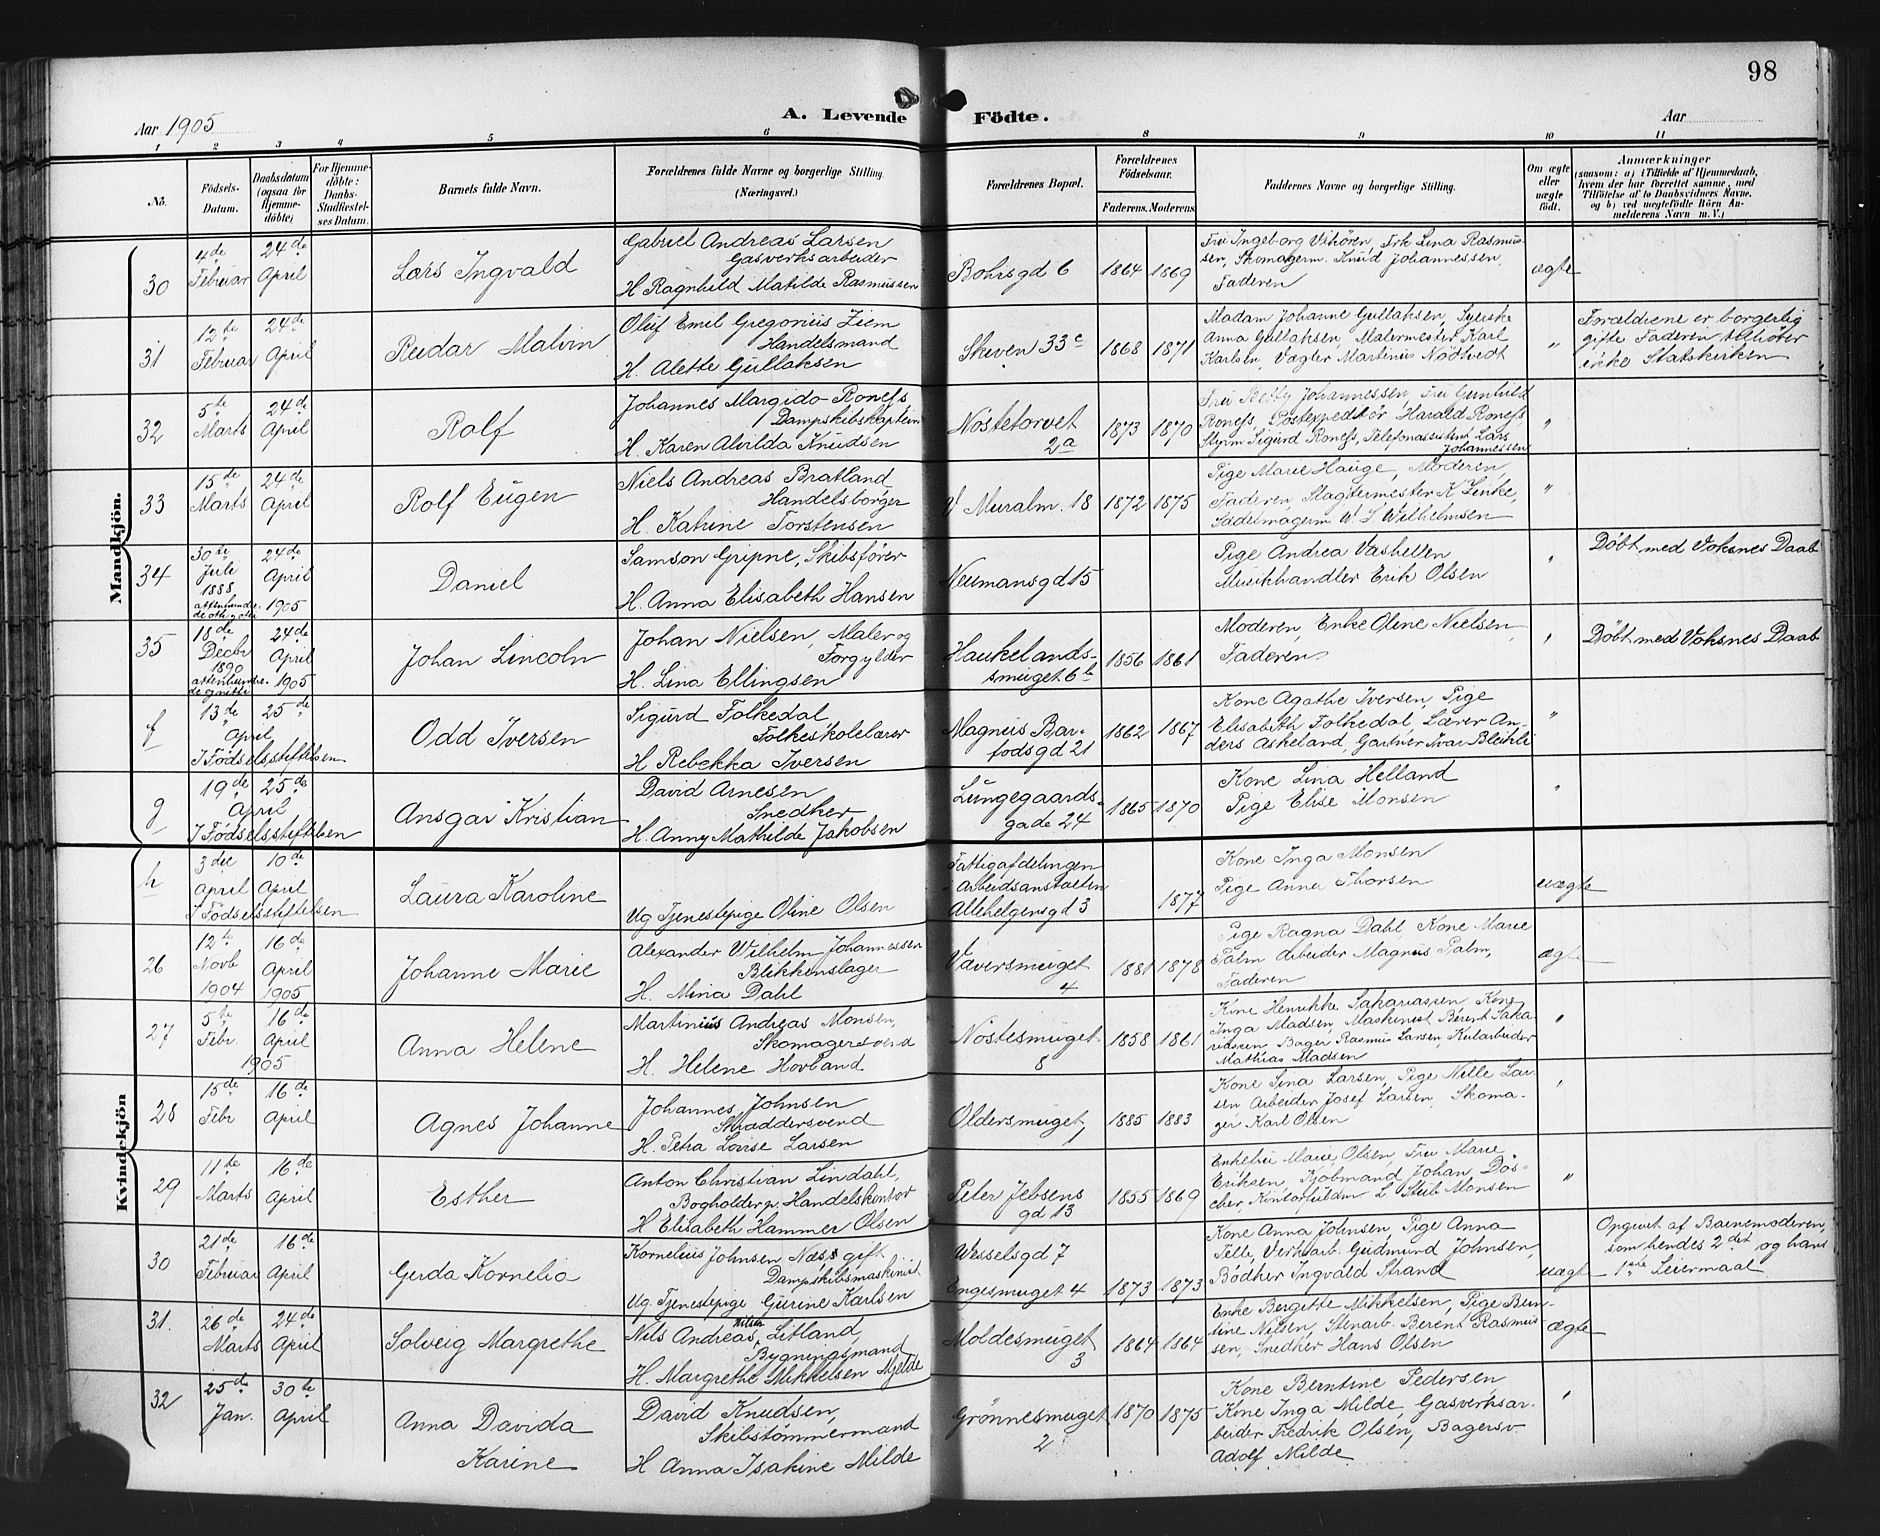 98
A. Levende Födte.
Aar 1905
Aar
1 2 3 4 5 6 8 9 10 11
No.
Födsels-Datum.
Daabsdatum (ogsaa for Hjemmedöbte)
For Hjemmedöbte: Daabs-Stadfæstelses Datum.
Barnets fulde Navn.
Forældrenes fulde Navne og borgerlige Stilling (Næringsvei.)
Forældrenes Bopæl.
Forældrenes Födselsaar.
Faderens. Moderens.
Faddernes Navne og borgerlige Stilling.
Om ægte eller uægte födt.
Anmærkninger
(saasom: a) i Tilfælde af Hjemmedaab, hvem der har forrettet samme, med Tilföielse af to Daabsvidners Navne, og b) ved uægtefödte Börn Anmelderens Navn m. V.)
Mandkjön.
30
4de Februar
24de April
Lars Ingvald
Gabriel Andreas Larsen
Gasverksarbeider
H Ragnhild Matilde Rasmussen
Bohrsgd 6
1864 1869
Fru Ingeborg Vihören, Frk Lina Rasmus-
sen, Skomagerm. Knud Johannessen,
Faderen
ægte
31
12te Februar
24de April
Reidar Malvin
Oluf Emil Gregorius Ziem
Handelsmand
H. Alette Gullaksen
Skeven 33c
1868 1871
Madam Johanne Gullaksen, Syersk
Anna Gullaksen, Malermester Karl
Karlsen, Vægter Martinus Nödtvedt
"
Forældrene er borgerlig
gifte Faderen tilhører
ikke Statskirken
32
5te Marts
24de April
Rolf
Johannes Margido Roness
Dampskibskaptein
H. Karen Alvilda Knudsen
Nöstetorvet
2a
1873 1870
Fru Betty Johannessen Fru Gunhild
Roness, Postexpeditör Harald Roness,
Styrm Sigurd Roness, Telefonassistent Lars
Johannessen
"
33
15de Marts
24de April
Rolf Eugen
Niels Andreas Bratland
Handelsborger
H. Katrine Torstensen
V Muralm. 18
1872 1875
Pige Marie Hauge, Moderen,
Faderen, Slagtermester K Linke,
Sadelmagerm W. S. Wilhelmsen
"
34
30te Juli 1888
attenhundrede otti otte
24de April 1905
Daniel
Samson Gripne, Skibsförer
H. Anna Elisabeth Hansen
Neumansgd 15
Pige Andrea Vasbotten
Musikhandler Erik Olsen
"
Döbt med Voksnes Daab
35
18de Decbr 1890
24de April 1905
Johan Lincoln
Johan Nielsen, Maler og
Forgylder
H. Lina Ellingsen
Haukelands-
smuget 6b
1856 1861
Moderen, Enke Oline Nielsen,
Faderen
"
Döbt med Voksnes Daab
f
13de April
25de
I Födselsstiftelsen
Odd Iversen
Sigurd Folkedal
Folkeskolelærer
H Rebekka Iversen
Magnus Bar-
fodsgd 21
1862 1867
Kone Agathe Iversen, Pige
Elisabeth Folkedal, Lærer An-
ders Askeland, Gartner Ivar Bleikli
"
g
19de April
25de
I Födselsstiftelsen
Ansgar Kristian
David Arnesen
Snedker
H. Anny Mathilde Jakobsen
Lungegaards-
gade 24
1865 1870
Kone Lina Helland
Pige Elise Monsen
"
Kvindekjön
h
3die April
10de April
I Födselsstiftelsen
Laura Karoline
Ug Tjenestepige Oline Olsen
Fattigafdelingen
Arbeidsanstalten
Allehelgensgd 3
1877
Kone Inga Monsen
Pige Anna Thorsen
uægte
26
12te Novb 1904
16de April 1905
Johanne Marie
Alexander Wilhelm Johannessen
Blikkenslager
H. Mina Dahl
Vaversmuget
4
1881 1878
Pige Ragna Dahl Kone Marie
Palm Arbeider Magnus Palm,
Faderen
ægte
27
5te Febr.
16de April
1905
Anna Helene
Martinius Andreas Monsen,
Skomagersvend
H. Helene Hovland
Nöstesmuget
8
1858 1861
Kone Henrikke Sakariassen Kone
Inga Madsen, Maskinist Berent Saka-
riassen Bager Rasmus Larsen, Kularbeider
Mathias Madsen
"
28
15de Febr
16de April
Agnes Johanne
Johannes Johnsen
Skraddersvend
H. Petra Lovise Larsen
Oldersmuget 1
1885 1883
Kone Sina Larsen, Pige Nille Lar-
sen Arbeider Josef Larsen Skoma-
ger Karl Olsen
"
29
11te Marts
16de April
Esther
Anton Christian Lindahl,
Bogholder p. Handelskontor
H Elisabeth Hammer Olsen
Peter Jebsens
gd 13
1855 1869
Enkefru Marie Olsen, Fru Marie
Eriksen, Kjöbmand Johan Dös-
cher, Kontorfuldm L Stub Monsen
"
30
21de Februar
16de April
Gerda Kornelia
Kornelius Johnsen Næss gift
Dampskibsmaskinist
Ug. Tjenestepige Gurine Karlsen
Wesselsgd 7
Engesmuget 4
1873 1873
Kone Anna Johnsen, Pige Anna
Telle, Verkarb. Gudmund Johnsen,
Bödker Ingvald Strand
uægte
Opgivet af Barnemoderen,
som hendes 2det og hans
1ste Leiermaal
31.
26de Marts
24de April
Solveig Margrethe
Nils Andreas Nilsen Litland,
Bygningsmand
H. Margrethe Mikkelsen Mjelde
Moldesmuget
3
1864 1864
Enke Bergitte Mikkelsen, Pige Bern-
tine Nilsen, Stenarb. Berent Rasmus
sen, Snedker Hans Olsen
ægte
32
25de Jan.
30te April
Anna Davida
Karine
David Knudsen,
Skibstömmermand
H Anna Isakine Milde
Grönnesmuget
2
1870 1875
Kone Berntine Pedersen
Kone Inga Milde Gasverksar-
beider Fredrik Olsen, Bagersv
Adolf Milde
"